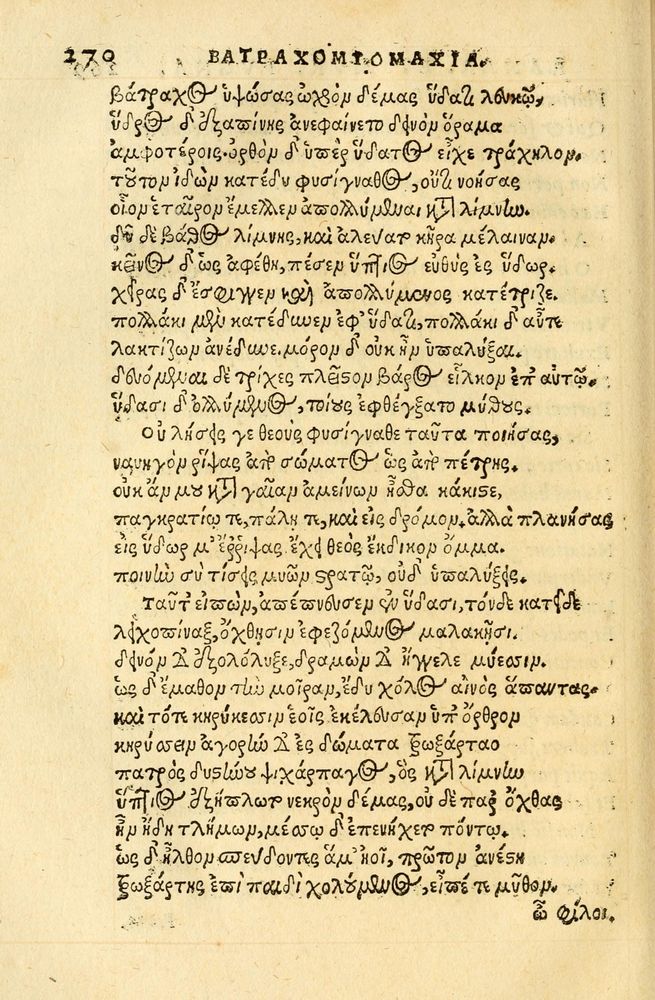 270 ΒΑΤΡΑΧΟΜΥΟΜΑΧΙΑ.
βάτραχος ὑψώσας ὠχρὸν δέμας ὕδατι λευκῷ,
ὕδρος δ' ἐξαπίνης ἀνεφαίνετο δεινὸν ὅραμα
ἀμφοτέροις. ὀρθὸν δ' ὑπὲρ ὕδατος εἶχε τράχηλον.
τοῦτον ἰδὼν κατέδυ φυσίγναθος, οὔτι νοήσας
οἷον ἑταῖρον ἔμελλεν ἀπολλύμεναι κατὰ λίμνην.
δῦ δὲ βάθος λίμνης, καὶ ἀλεύατο κῆρα μέλαιναν.
κεῖνος δ' ὡς ἀφέθη, πέσεν ὕπτιος εὐθὺς ἐς ὕδωρ.
χεῖρας δ' ἔσφιγγεν καὶ ἀπολλύμενος κατέτριζε.
πολλάκι μὲν κατέδυνεν ἐφ' ὕδατι, πολλάκι δ' αὖτε
λακτίζων ἀνέδυνε. μόρον δ' οὐκ ἦν ὑπαλύξαι.
δευόμεναι δὲ τρίχες πλεῖστον βάρος εἷλκον ἐπ' αὐτῷ.
ὕδασι δ' ὀλλύμενος, τοίους ἐφθέγξατο μύθους.
Οὐ λήσεις γε θεοὺς φυσίγναθε ταῦτα ποιήσας,
ναυηγὸν ῥίψας ἀπὸ σώματος ὡς ἀπὸ πέτρης.
οὐκ ἄν μου κατὰ γαῖαν ἀμείνων ἦσθα κάκιστε,
παγκρατίῳ τε, πάλῃ τε, καὶ εἰς δρόμον. ἀλλὰ πλανήσας
εἰς ὕδωρ μ' ἔρριψας. ἔχει θεὸς ἔκδικον ὄμμα.
ποινὴν σὺ τίσεις μυῶν στρατῷ, οὐδ' ὑπαλύξεις.
Ταῦτ' εἰπὼν, ἀπέπνευσεν ἐν ὕδασι, τόνδε κατεῖδε
λειχοπίναξ, ὄχθῃσιν ἐφεζόμενος μαλακῇσι.
δεινὸν δ' ἐξολόλυξε, δραμὼν δ' ἤγγελε μύεσσιν.
ὡς δ' ἔμαθον τὴν μοῖραν, ἔδυ χόλος αἰνὸς ἅπαντας.
καὶ τότε κηρύκεσσιν ἑοῖς ἐκέλευσαν ὑπ' ὄρθρον
κηρύσσειν ἀγορὴν δ' ἐς δώματα τρωξάρταο
πατρὸς δυστήνου ψιχάρπαγος, ὃς κατὰ λίμνην
ὕπτιος ἐξήπλωτο νεκρὸν δέμας, οὐδὲ παρ' ὄχθας
ἦν ἤδη τλήμων, μέσσῳ δ' ἐπενήχετο πόντῳ.
ὡς δ' ἦλθον σπεύδοντες ἅμ' ἠοῖ, πρῶτον ἀνέστη
τρωξάρτης ἐπὶ παιδὶ χολούμενος, εἶπέ τε μῦθον.
ὦ φίλοι.